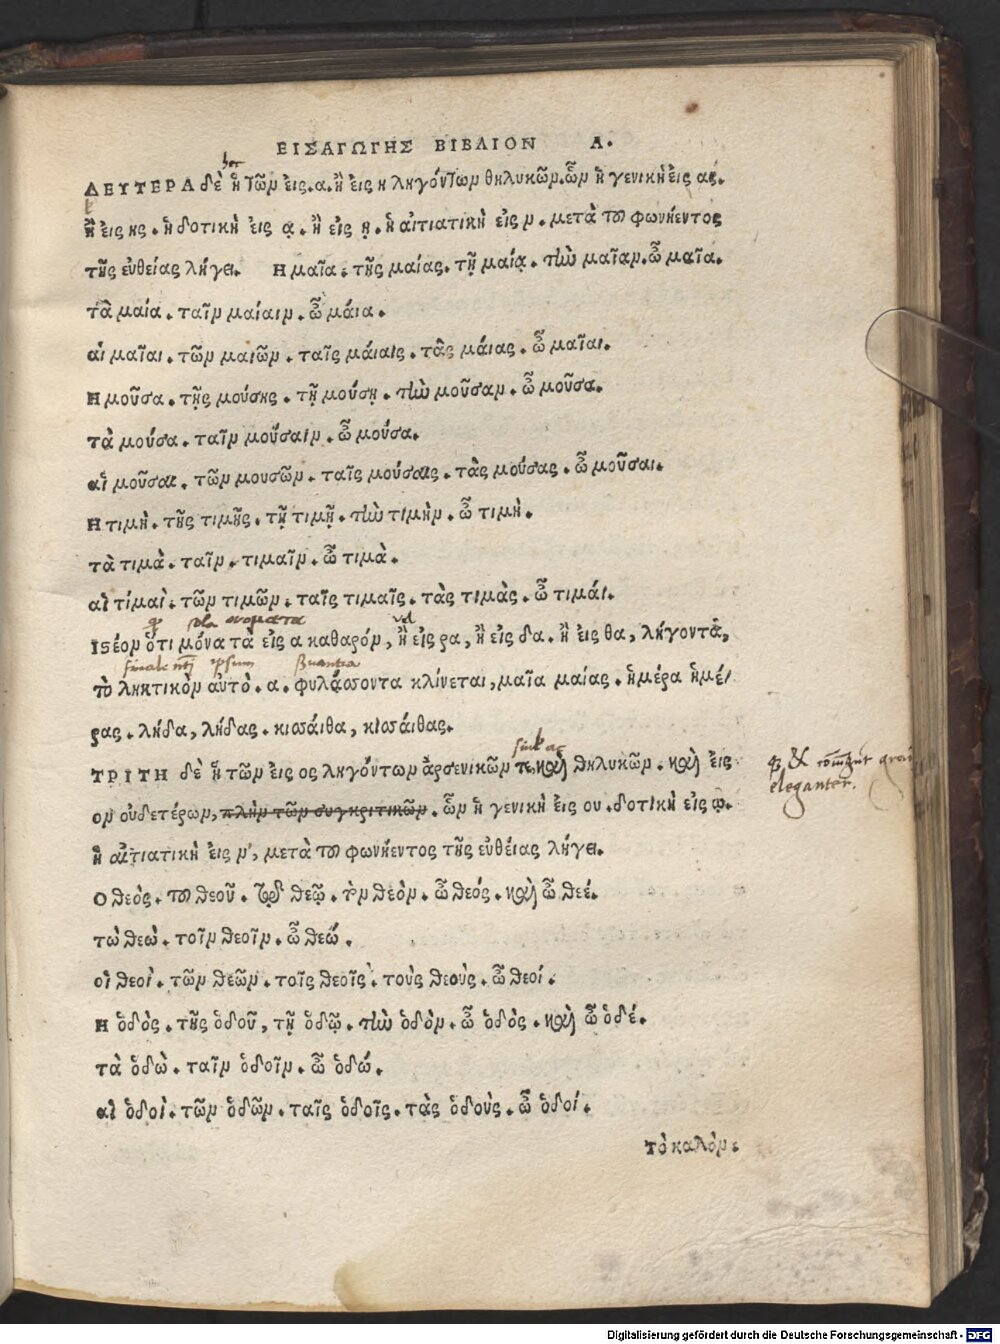 ΕΙΣΑΓΩΓΗΣ ΒΙΒΛΙΟΝ Α.
ΔΕΥΤΕΡΑ δὲ ἡ τῶν εἰς. α. ἢ εἰς η ληγόντων θηλυκῶν. ὧν ἡ γενικὴ εἰς ας.
ἢ εἰς ης. ἡ δοτικὴ εἰς ᾳ. ἢ εἰς ῃ. ἡ αἰτιατικὴ εἰς ν. μετὰ τοῦ φωνήεντος
τῆς εὐθείας λήγει. Η μαῖα. τῆς μαίας. τῇ μαίᾳ. τὴν μαῖαν. ὦ μαῖα.
τὰ μαία. ταῖν μαίαιν. ὦ μάια.
αἱ μαῖαι. τῶν μαιῶν. ταῖς μάιαις. τὰς μάιας. ὦ μαῖαι.
Η μοῦσα. τῆς μούσης. τῇ μούσῃ. τὴν μοῦσαν. ὦ μοῦσα.
τὰ μούσα. ταῖν μούσαιν. ὦ μούσα.
αἱ μοῦσαι. τῶν μουσῶν. ταῖς μούσαις. τὰς μούσας. ὦ μοῦσαι.
Η τιμὴ. τῆς τιμῆς. τῇ τιμῇ. τὴν τιμὴν. ὦ τιμὴ.
τὰ τιμὰ. ταῖν. τιμαῖν. ὦ τιμὰ.
αἱ τίμαὶ. τῶν τιμῶν. ταῖς τιμαῖς. τὰς τιμὰς. ὦ τιμάι.
Ιϛέον ὅτι μόνα τὰ εἰς α καθαρόν, ἢ εἰς ρα, ἢ εἰς δα. ἢ εἰς θα, λήγοντα,
τὸ ληκτικὸν αὐτὸ. α. φυλάσσοντα κλίνεται, μαῖα μαίας. ἡμέρα ἡμέ/
ρας. λήδα, λήδας. κισσάιθα, κισσάιθας.
ΤΡΙΤΗ δὲ ἡ τῶν εἰς ος ληγόντων ἀρσενικῶν τε καὶ θηλυκῶν. καὶ εἰς
eleganter.
ον οὐδετέρων, πλὴν τῶν συγκριτικῶν. ὧν ἡ γενικὴ εἰς ου. δοτικὴ εἰς ῳ.
ἡ αἰτιατικὴ εἰς ν, μετὰ τοῦ φωνήεντος τῆς εὐθέιας λήγει.
Ο θεὸς. τοῦ θεοῦ. τῷ θεῷ. τὸν θεὸν. ὦ θεός. καὶ ὦ θεέ.
τὼ θεὼ. τοῖν θεοῖν. ὦ θεώ.
οἱ θεοὶ. τῶν θεῶν. τοῖς θεοῖς. τοὺς θεοὺς. ὦ θεοί.
Η ὁδὸς. τῆς ὁδοῦ, τῇ ὁδῷ. τὴν ὁδὸν. ὦ ὁδὸς. καὶ ὦ ὁδέ.
τὰ ὁδὼ. ταῖν ὁδοῖν. ὦ ὁδώ.
αἱ ὁδοὶ. τῶν ὁδῶν. ταῖς ὁδοῖς. τὰς ὁδοὺς. ὦ ὁδοί.
τὸ καλὸν.
Digitalisierung gefördert durch die Deutsche Forschungsgemeinschaft - DFG